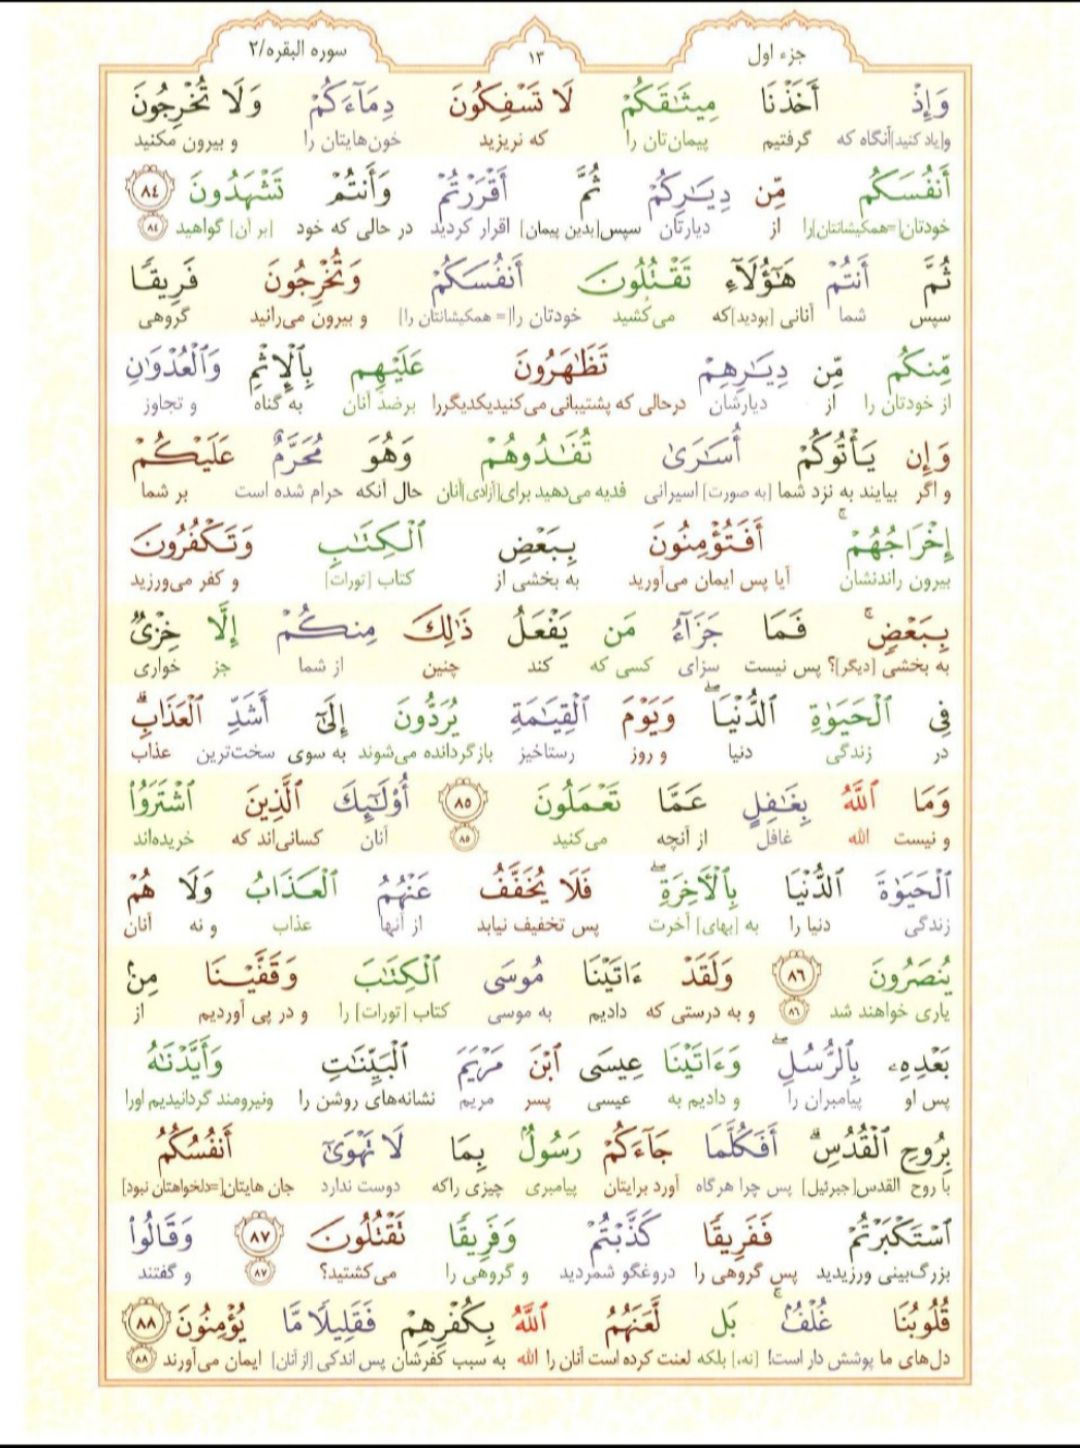 جزء اول
۱۳
سوره البقره/۲
وَإِذْ أَخَذْنَا مِيثَٰقَكُمْ لَا تَسْفِكُونَ دِمَآءَكُمْ وَلَا تُخْرِجُونَ
و[یاد کنید]آنگاه که گرفتیم پیمان‌تان را که نریزید خون‌هایتان را و بیرون مکنید
أَنفُسَكُم مِّن دِيَٰرِكُمْ ثُمَّ أَقْرَرْتُمْ وَأَنتُمْ تَشْهَدُونَ ٨٤
خودتان[=همکیشانتان]را از دیارتان سپس[بدین پیمان] اقرار کردید در حالی که خود [بر آن] گواهید ٨٤
ثُمَّ أَنتُمْ هَٰٓؤُلَآءِ تَقْتُلُونَ أَنفُسَكُمْ وَتُخْرِجُونَ فَرِيقًا
سپس شما آنانی [بودید]که می‌کُشید خودتان را[= همکیشانتان را] و بیرون می‌رانید گروهی
مِّنكُم مِّن دِيَٰرِهِمْ تَظَٰهَرُونَ عَلَيْهِم بِٱلْإِثْمِ وَٱلْعُدْوَٰنِ
از خودتان را از دیارشان درحالی که پشتیبانی می‌کنیدیکدیگررا برضد آنان به گناه و تجاوز
وَإِن يَأْتُوكُمْ أُسَٰرَىٰ تُفَٰدُوهُمْ وَهُوَ مُحَرَّمٌ عَلَيْكُمْ
و اگر بیایند به نزد شما [به صورت] اسیرانی فدیه می‌دهید برای[آزادی]آنان حال آنکه حرام شده است بر شما
إِخْرَاجُهُمْ ۚ أَفَتُؤْمِنُونَ بِبَعْضِ ٱلْكِتَٰبِ وَتَكْفُرُونَ
بیرون راندنشان آیا پس ایمان می‌آورید به بخشی از کتاب [تورات] و کفر می‌ورزید
بِبَعْضٍ ۚ فَمَا جَزَآءُ مَن يَفْعَلُ ذَٰلِكَ مِنكُمْ إِلَّا خِزْىٌ
به بخشی [دیگر]؟ پس نیست سزای کسی که کند چنین از شما جز خواری
فِى ٱلْحَيَوٰةِ ٱلدُّنْيَا ۖ وَيَوْمَ ٱلْقِيَٰمَةِ يُرَدُّونَ إِلَىٰٓ أَشَدِّ ٱلْعَذَابِ ۗ
در زندگی دنیا و روز رستاخیز بازگردانده می‌شوند به سوی سخت‌ترین عذاب
وَمَا ٱللَّهُ بِغَٰفِلٍ عَمَّا تَعْمَلُونَ ٨٥ أُو۟لَٰٓئِكَ ٱلَّذِينَ ٱشْتَرَوُا۟
و نیست الله غافل از آنچه می‌کنید ٨٥ آنان کسانی‌اند که خریده‌اند
ٱلْحَيَوٰةَ ٱلدُّنْيَا بِٱلْءَاخِرَةِ ۖ فَلَا يُخَفَّفُ عَنْهُمُ ٱلْعَذَابُ وَلَا هُمْ
زندگی دنیا را به [بهای] آخرت پس تخفیف نیابد از آنها عذاب و نه آنان
يُنصَرُونَ ٨٦ وَلَقَدْ ءَاتَيْنَا مُوسَى ٱلْكِتَٰبَ وَقَفَّيْنَا مِنۢ
یاری خواهند شد ٨٦ و به درستی که دادیم به موسی کتاب [تورات] را و در پی آوردیم از
بَعْدِهِۦ بِٱلرُّسُلِ ۖ وَءَاتَيْنَا عِيسَى ٱبْنَ مَرْيَمَ ٱلْبَيِّنَٰتِ وَأَيَّدْنَٰهُ
پس او پیامبران را و دادیم به عیسی پسر مریم نشانه‌های روشن را ونیرومند گردانیدیم اورا
بِرُوحِ ٱلْقُدُسِ ۗ أَفَكُلَّمَا جَآءَكُمْ رَسُولٌۢ بِمَا لَا تَهْوَىٰٓ أَنفُسُكُمُ
با روح القدس[جبرئیل] پس چرا هرگاه آورد برایتان پیامبری چیزی راکه دوست ندارد جان هایتان[=دلخواهتان نبود]
ٱسْتَكْبَرْتُمْ فَفَرِيقًا كَذَّبْتُمْ وَفَرِيقًا تَقْتُلُونَ ٨٧ وَقَالُوا۟
بزرگ‌بینی ورزیدید پس گروهی را دروغگو شمردید و گروهی را می‌کشتید؟ ٨٧ و گفتند
قُلُوبُنَا غُلْفٌۢ ۚ بَل لَّعَنَهُمُ ٱللَّهُ بِكُفْرِهِمْ فَقَلِيلًا مَّا يُؤْمِنُونَ ٨٨
دل‌های ما پوشش دار است! [نه،] بلکه لعنت کرده است آنان را الله به سبب کفرشان پس اندکی [از آنان] ایمان می‌آورند ٨٨